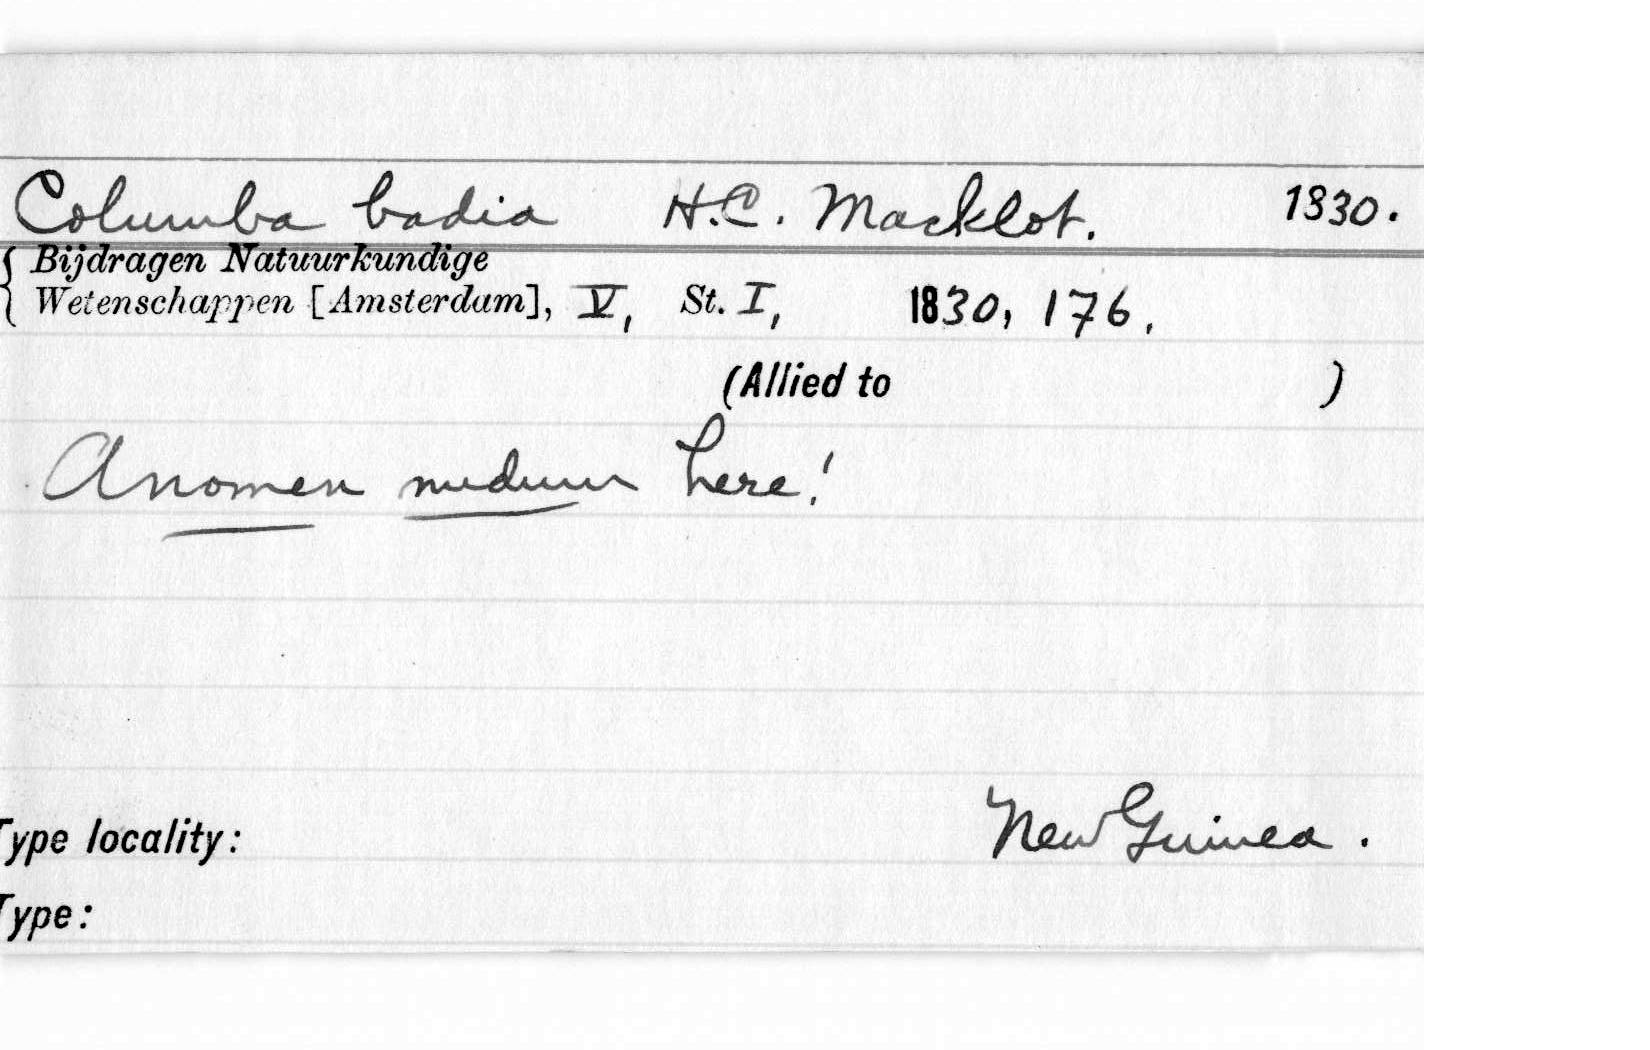 Columba badia H.C. Macklot. 1830.
{ Bijdragen Natuurkundige
Wetenschappen [Amsterdam], V, St. I, 1830, 176.
(Allied to )
A nomen nudum here!
Type locality: New Guinea.
Type: